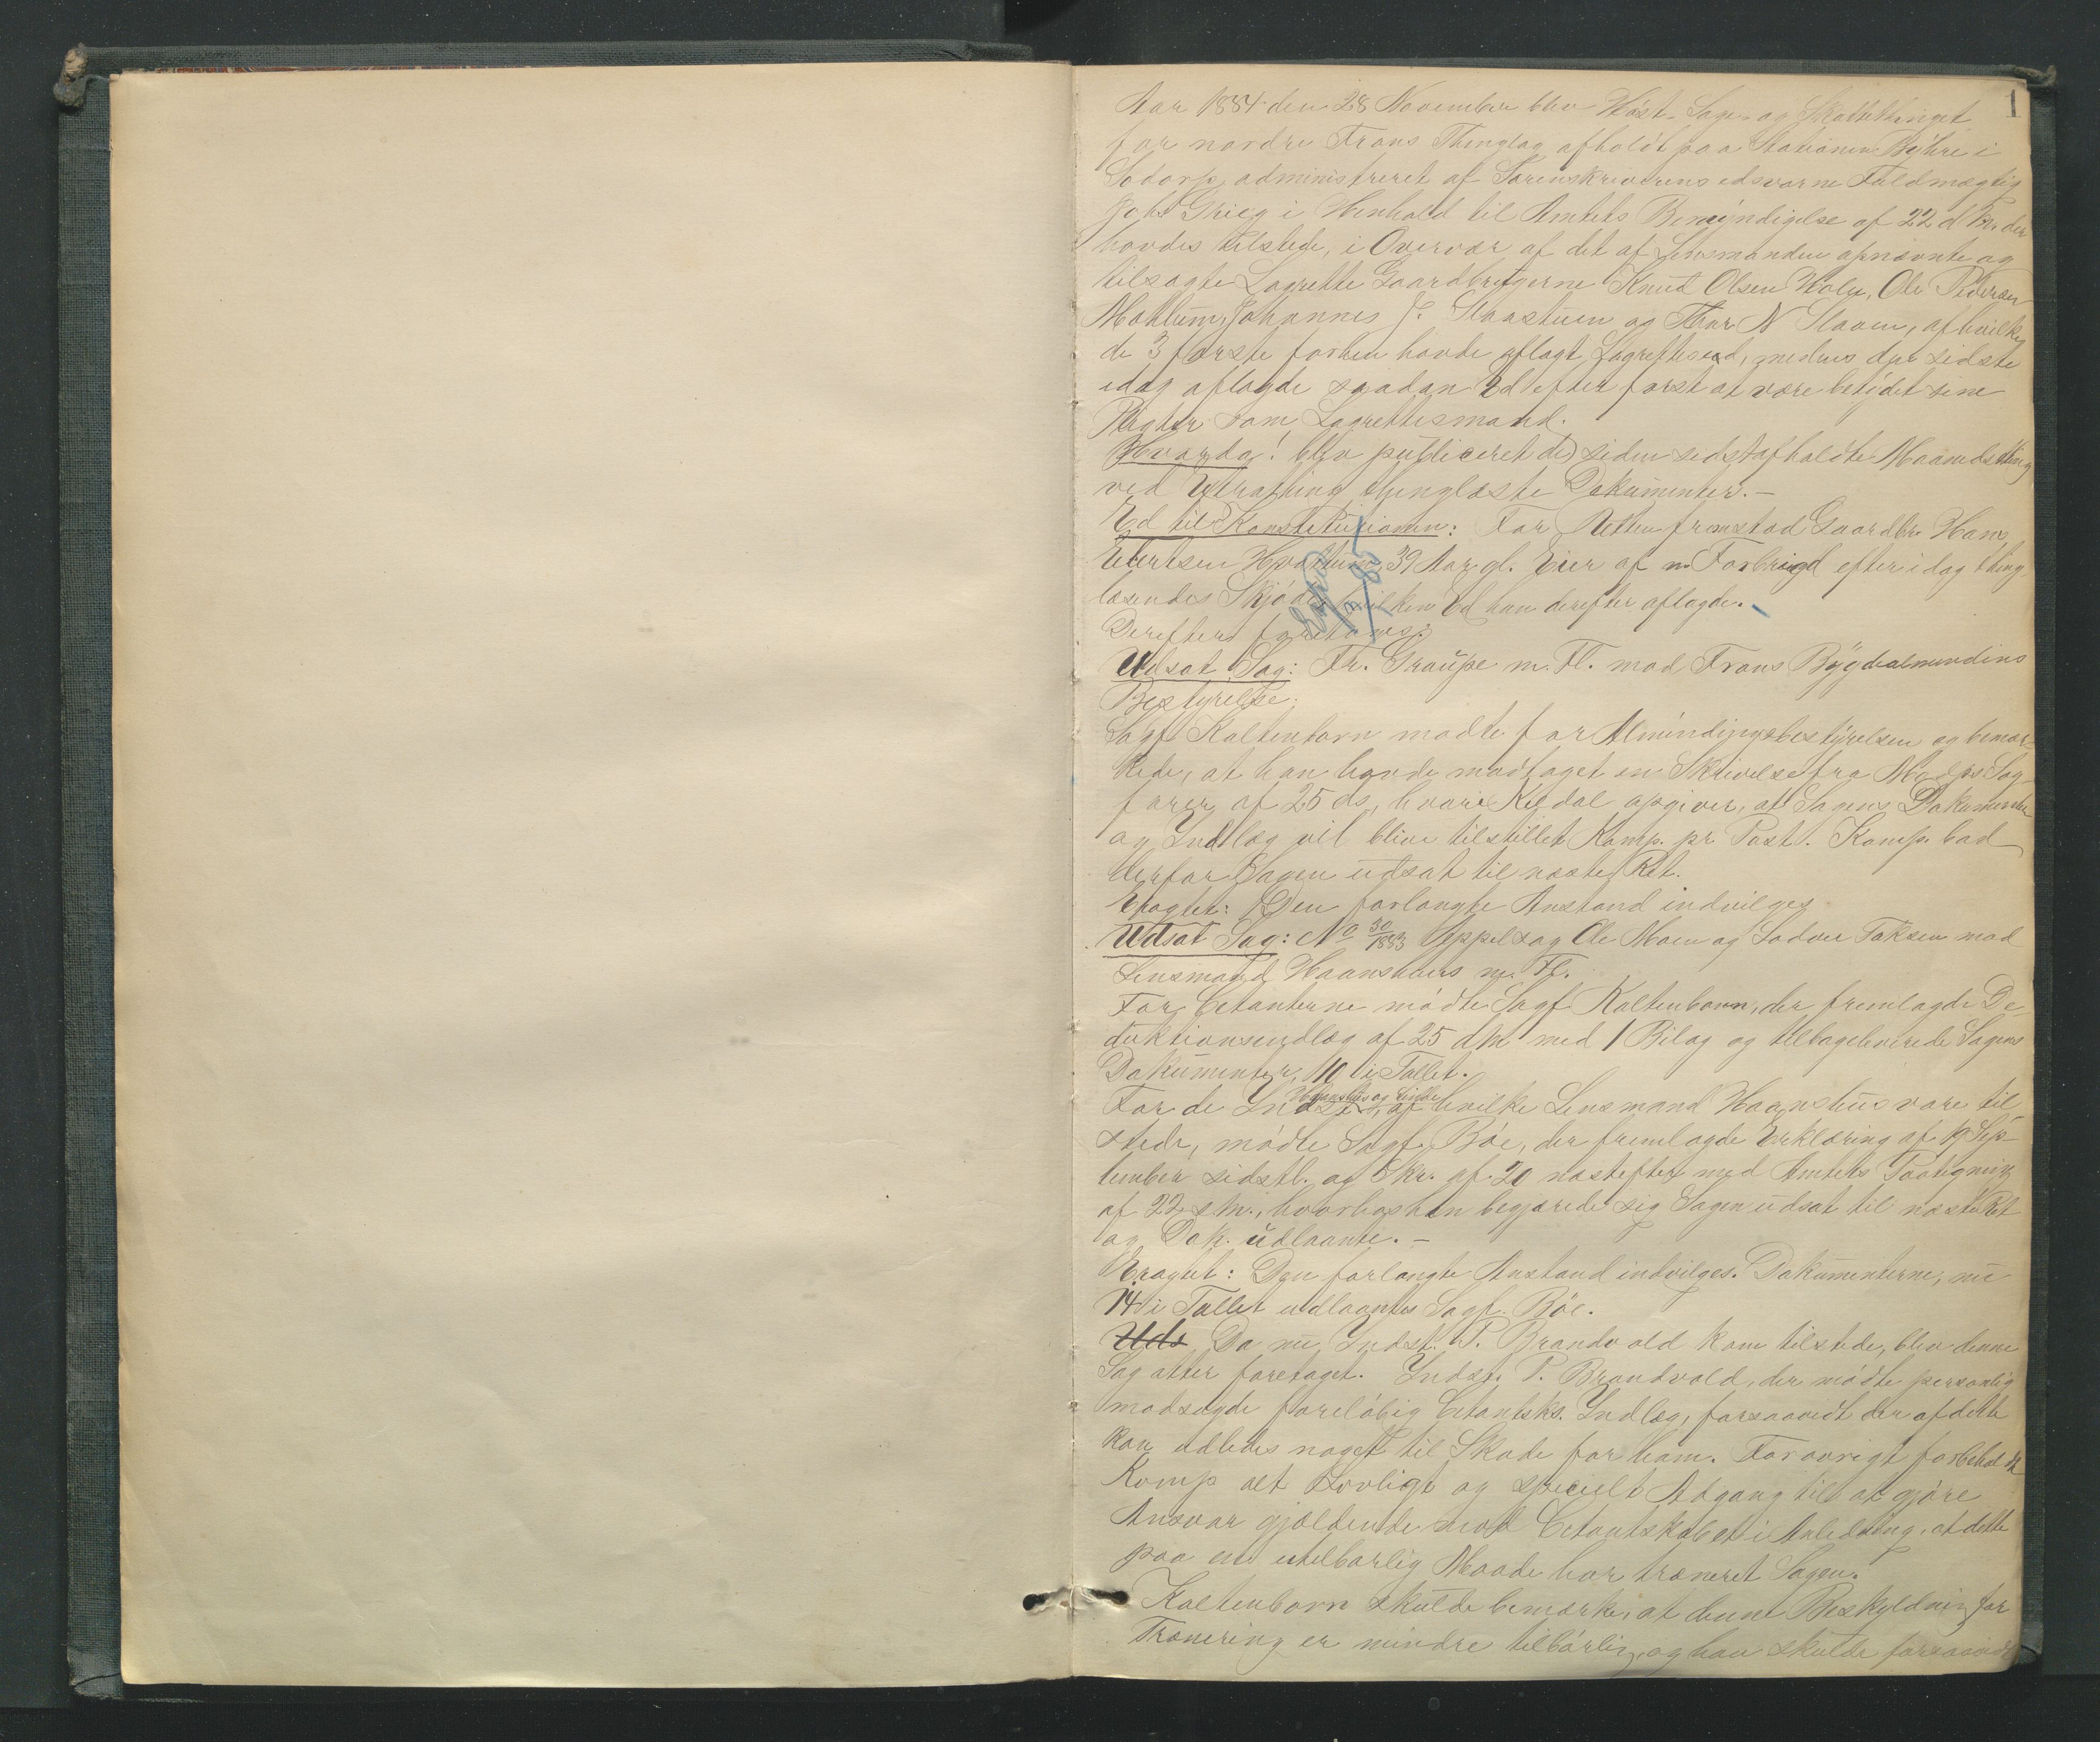 1
Aar 1884 den 28 November blev Høst- Sage- og Skattethinget
for nordre Frons Thinglag afholdt paa Stationen Byhre i
Sødorp administreret af Sorenskriverens edsvorne Fuldmægtig
Johs Grieg i Henhold til Amtets Bemyndigelse af 22 d M. der
havdes tilstede, i Overvær af det af Lensmanden opnævnte og
tilsagte Lagrette Gaardbrugerne Knud Olsen Kolu, Ole Pedersen
Moklum, Johannes J. Staastuen og Thor N Slaaen, af hvilke
de 3 første forhen havde aflagt Lagretteséd, medens den sidste
idag aflagde saadan Ed efter først at være betydet sine
Pligter som Lagrettesmand.
Hvorda: blev publiceret de siden sidstafholdte Maanedsthing
ved thinglæste Dokumenter. —
Ed til Konstitutionen: For Retten fremstod Gaardbr. Hans
Evertsen 39 Aar gl. Eier af n. Forbrigd efter idag thing
læsendes Skjøde, hvilken Ed han derefter aflagde.
Derefter foretoges:
Udsat Sag: Fr. Graupe m. Fl. mod Frons Bygdealmendins
Bestyrelse.
Sagf Kaltenborn mødte for Almindingsbestyrelsen og bemær-
kede, at han havde modtaget en Skrivelse fra Modps Sag
fører af 25 ds, hvori Kildal opgiver, at Sagens Dokumenter
og Indlæg vil blive tilstillet Komp. pr Post. Komp. bad
derfor Sagen udsat til næste Ret.
Eragtet: Den forlangte Anstand indvilges.
Udsat Sag: No 30/1883 Appelsag Ole Moen og Sodver Taksen mod
Lensmand Haanshuus m. Fl.
For Citanterne mødte Sagf Kaltenborn, der fremlagde De
duktionsindlæg af 25 dM med 1 Bilag og tilbageleverede Sagens
Dokumenter, 110 i Tallet.
Haanshus og Linde
For de Indst., af hvilke Lensmand Haanshus vare til
stede, mødte Sagf. Bøe, der fremlagde Erklæring af 19 Sep-
tember sidstl. og Skr. af 20 næstefter med Amtets Paategning
af 22 s M., hvorhos han begjærede sig Sagen udsat til næste Ret
og Dok. udlaante. —
Eragtet: Den forlangte Anstand indvilges. Dokumenterne, nu
14 i Tallet udlaantes Sagf. Bøe.
Uds Da nu Indst. P. Brandvold kom tilstede, blev denne
Sag atter foretaget. Indst. P. Brandvold, der mødte personlig
modsagde foreløbig Citantsks. Indlæg, forsaavidt der af dette
kan udledes noget til Skade for ham. Forøvrigt forbeholdt
Komp alt Lovligt og specielt Adgang til at gjøre
Ansvar gjældende mod Citantskabet i Anledning, at dette
paa en utilbørlig Maade har træneret Sagen.
Kaltenborn skulde bemærke, at denne Beskyldning for
Trænering er mindre tilbørlig, og han skulde forsaavidt